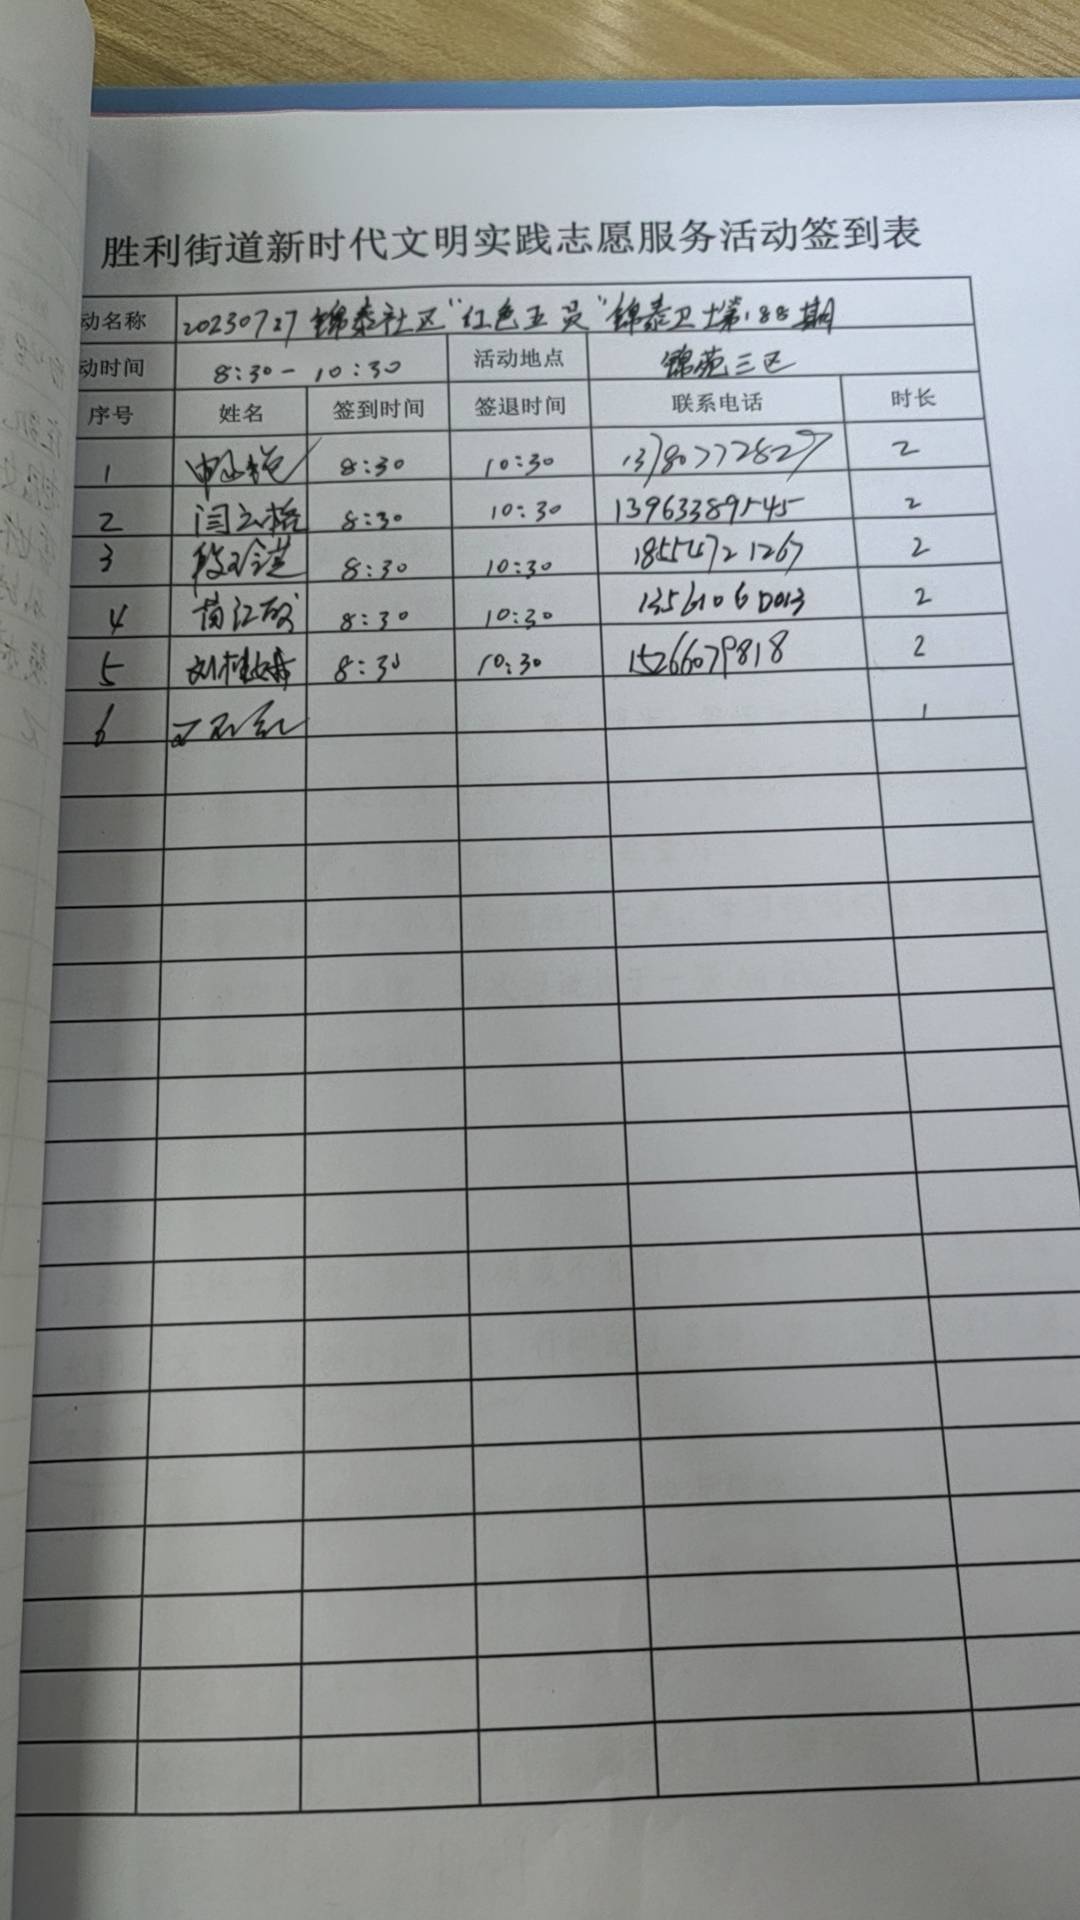 胜利街道新时代文明实践志愿服务活动签到表
动名称 20230727 锦泰社区"红色五员"锦泰卫士第188期
动时间 8:30-10:30 活动地点 锦苑三区
序号 姓名 签到时间 签退时间 联系电话 时长
1 8:30 10:30 13780772827 2
2 闫云格 8:30 10:30 13963389545 2
3 8:30 10:30 18554721267 2
4 苗江 8:30 10:30 13561060013 2
5 刘桂 8:30 10:30 15266079818 2
6